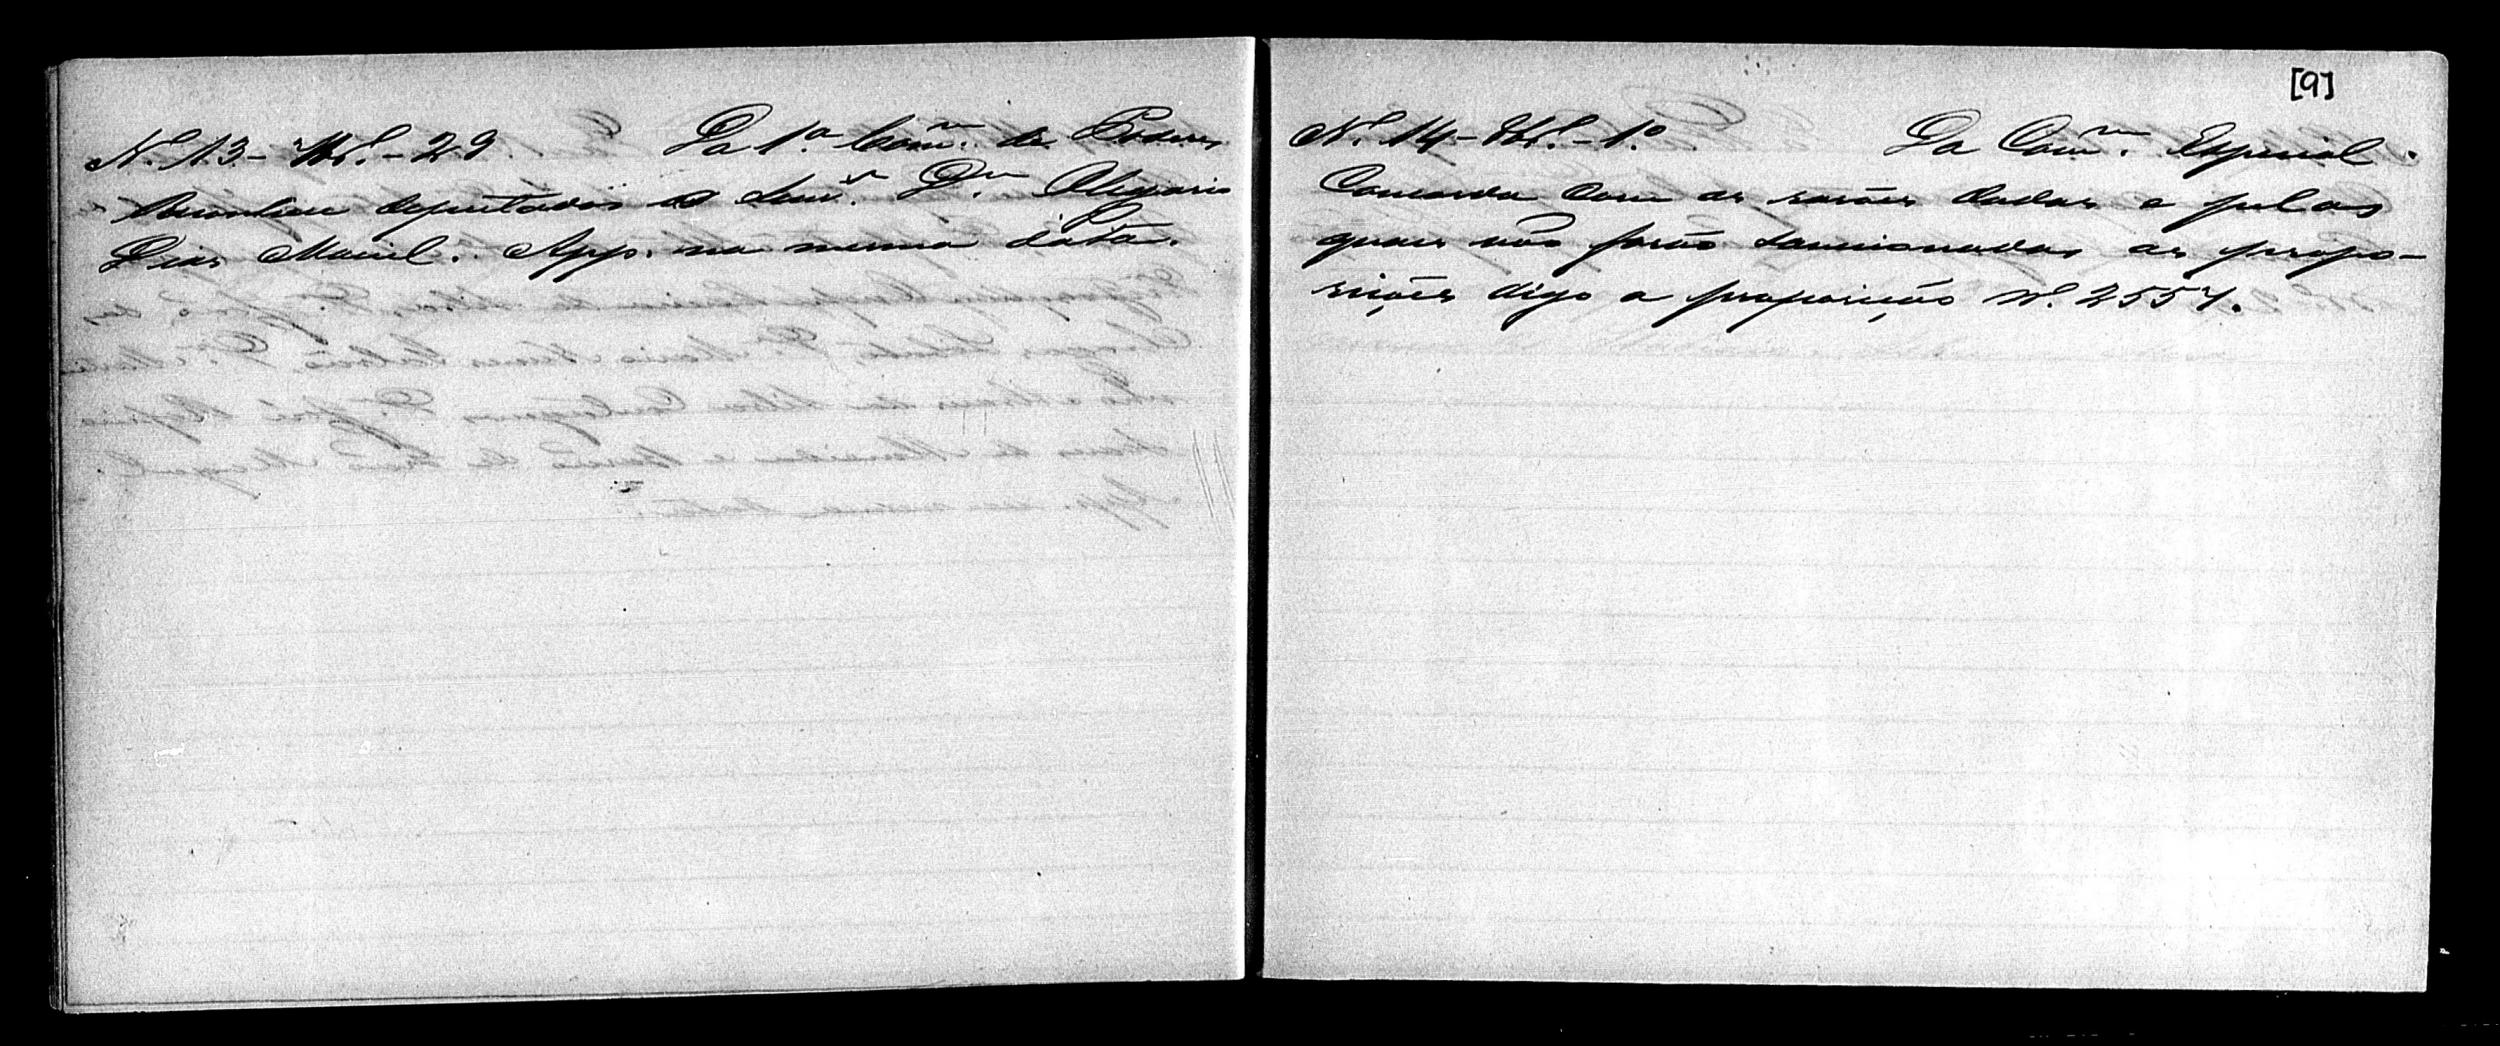 Nº 13 - - 29 Da 1ª Com.m de Poderes
Reconhece deputados o Sen.r D.r Olegario
Dias Maciel. App. na mesma data.
[9]
Nº 14 - - 1º Da Com.m Especial.
Concorda com as rasões dadas e pelas
quaes não forão sanccionadas as propo-
sições digo a proposição Nº 2557.